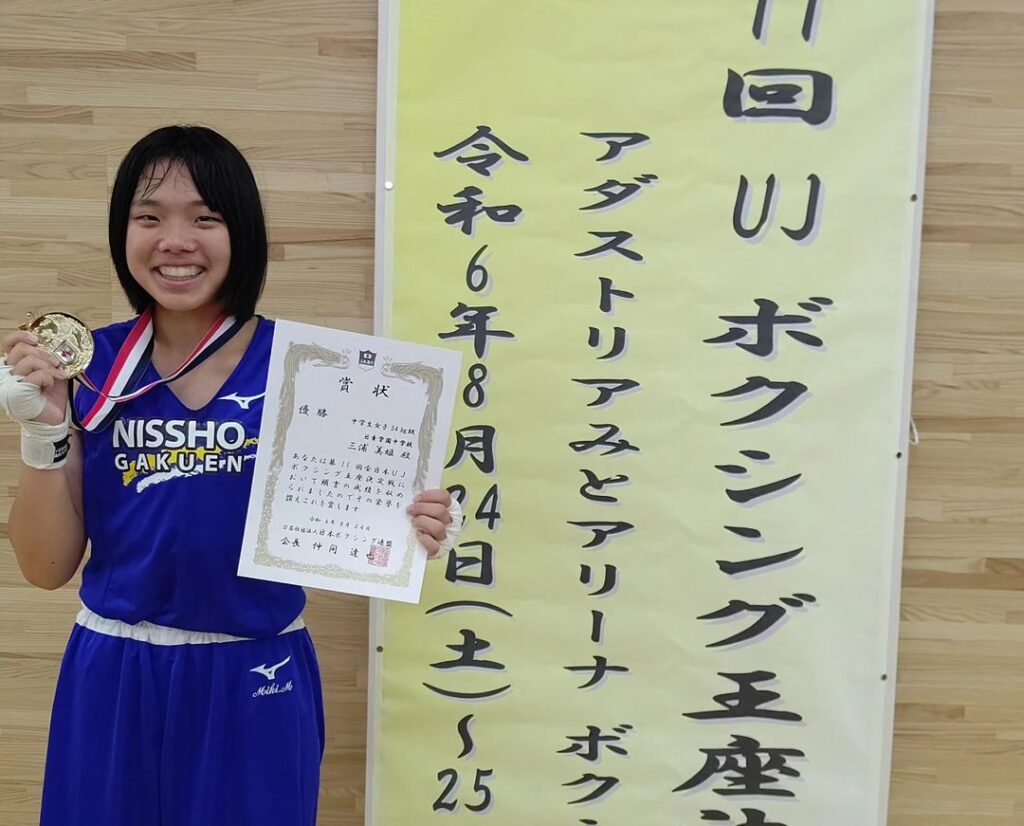 11回 UJ ボクシング王座決
アダストリアみとアリーナ ボクシ
令和6年8月24日(土)～25
NISSHO
GAKUEN
Miki.M
賞状
優勝
中学生女子54kg級
日章学園中学校
三浦 美姫 殿
あなたは第11回全日本UJ
ボクシング王座決定戦に
おいて頭書の成績を収め
られましたのでその栄誉を
讃えこれを賞します
令和6年8月24日
公益社団法人日本ボクシング連盟
会長 仲間 達也